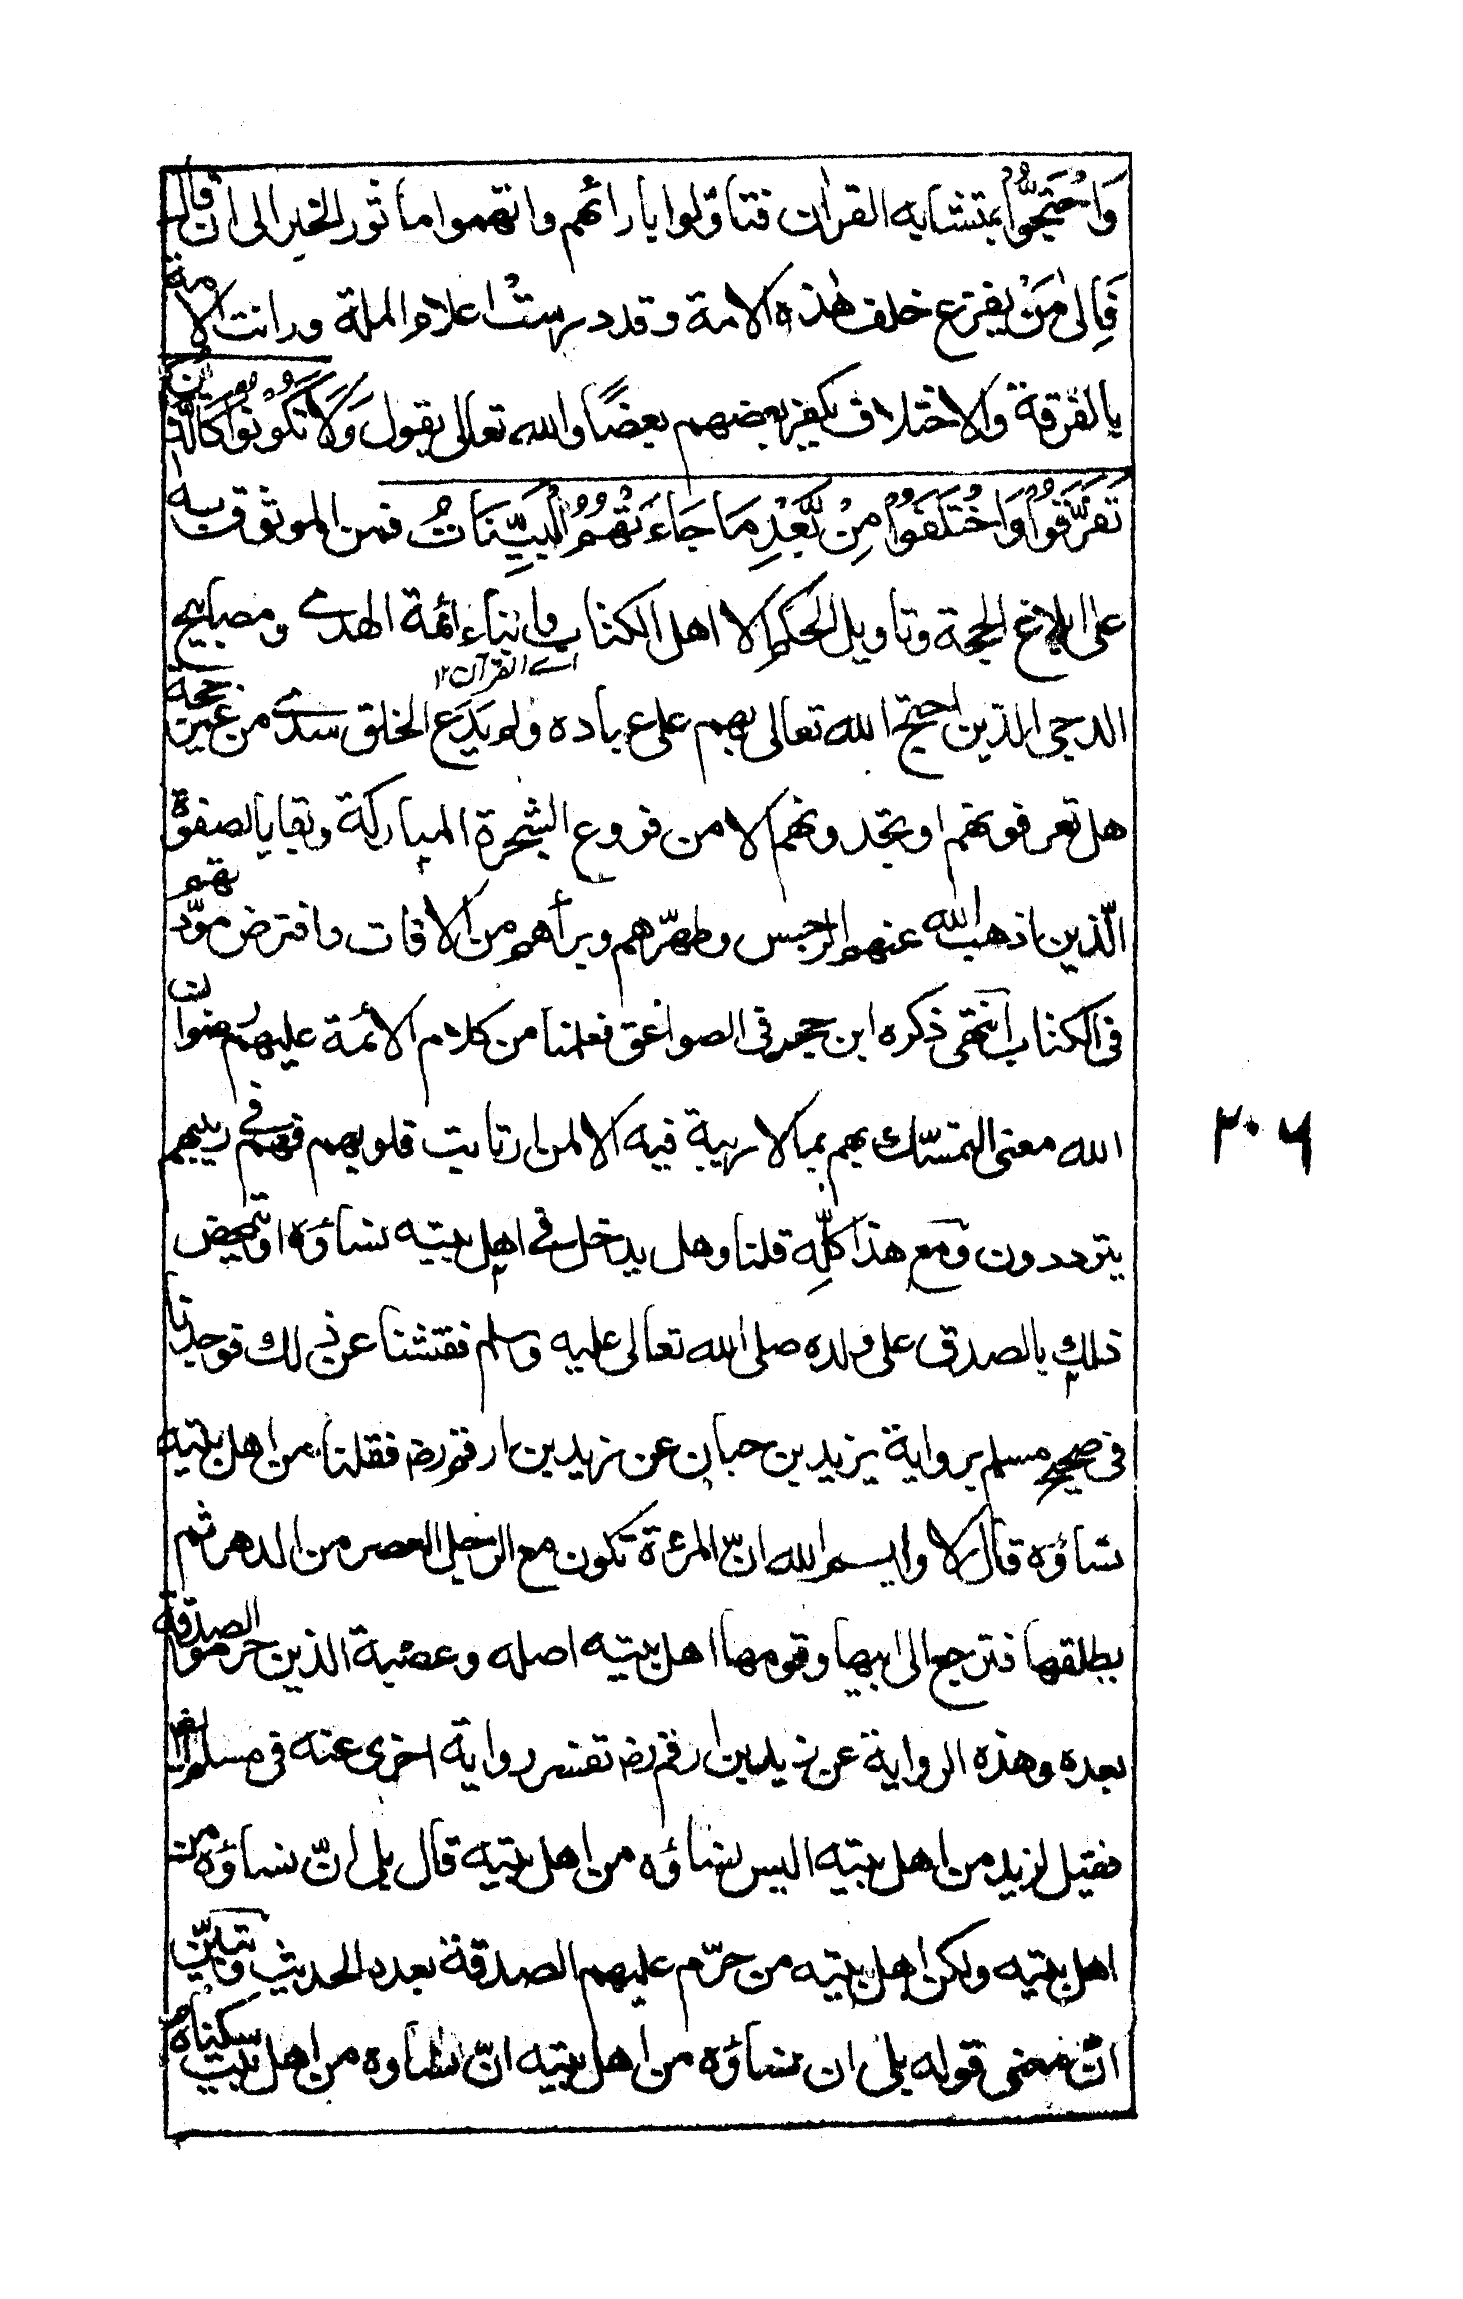 وَاحْتَجُّوْا بمتشابه القرآن فتاوّلوا بارائهم واتهموا ماثور الخبر الى ان قال
فَاِلىٰ مَنْ يفزع خلف هٰذه الامة وقد درستْ اعلام الملة ودانت الامة
بالفرقة والاختلاف يكفر بعضهم بعضًا والله تعالى يقول وَلَا تَكُوْنُوْا كَالَّذِيْنَ
تَفَرَّقُوْا وَاخْتَلَفُوْا مِنْ بَعْدِ مَا جَاءَتْهُمُ الْبَيِّنَاتُ فمن الموثوق به
على ابلاغ الحجة وتاويل الحكم الا اهل الكتاب وابناء ائمة الهدى ومصابيح
اے القرآن ١٢
الدجى الذين احتج الله تعالى بهم على عباده ولم يَدَع الخلق سدى من غير حجة
هل تعرفونهم او تجدونهم الا من فروع الشجرة المباركة وبقايا الصفوة
الّذين اذهب الله عنهم الرجس وطهّرهم وبرأهم من الافات وافترض مودّتهم
فى الكتاب انتهى ذكره ابن حجر فى الصواعق فعلمنا من كلام الائمة عليهم رضوان
الله معنى التمسّك بهم بما لا ريبة فيه الا لمن ارتابت قلوبهم فهم فى ريبهم
يترددون ومع هذا كلِّه قلنا وهل يدخل فى اهل بيته نساؤه او تمحيض
ذلك بالصدق على ولده صلى الله تعالى عليه وسلم ففتشنا عن ذلك فوجدنا
فى صحيح مسلم برواية يزيد بن حبان عن زيد بن ارقم رض فقلنا من اهل بيته
نساؤه قال لا وايم الله انّ المرءة تكون مع الرجل العصر من الدهر ثم
يطلقها فترجع الى ابيها وقومها اهل بيته اصله وعصبة الذين حرموا الصدقة
بعده وهذه الرواية عن زيد بن ارقم رض تفسر رواية اخرى عنه فى مسلم ايضا
فقيل لزيد من اهل بيته اليس نساؤه من اهل بيته قال بلى انّ نساؤه من
اهل بيته ولكن اهل بيته من حرّم عليهم الصدقة بعده الحديث وتبيّن
انّ معنى قوله بلى ان نساؤه من اهل بيته انّ نساوه من اهل بيت سكناه
٢٠٦